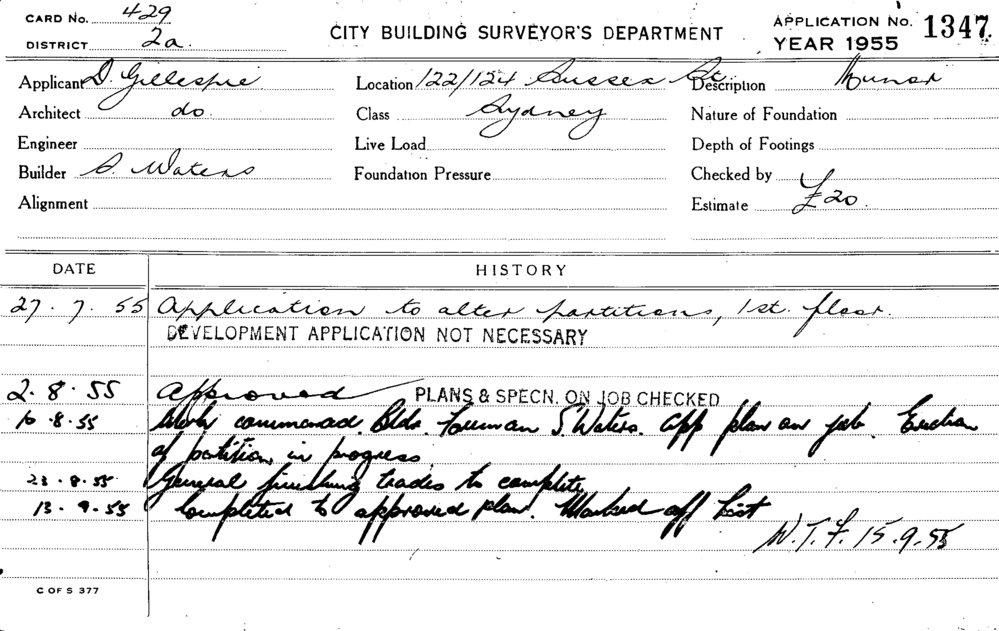 CARD No. 429
DISTRICT 2a
CITY BUILDING SURVEYOR'S DEPARTMENT
APPLICATION No. 1347
YEAR 1955
Applicant D. Gillespie
Location 122/124 Sussex St
Description Minor
Architect do.
Class Sydney
Nature of Foundation
Engineer
Live Load
Depth of Footings
Builder S. Waters
Foundation Pressure
Checked by
Alignment
Estimate £20.
DATE HISTORY
27. 7. 55 Application to alter partitions, 1st. floor.
DEVELOPMENT APPLICATION NOT NECESSARY
2. 8. 55 Approved PLANS & SPECN. ON JOB CHECKED
10. 8. 55 Work commenced. Bldr. Foreman S. Waters. App plan on job. Erection
of partition in progress
23. 8. 55 General finishing trades to complete
13. 9. 55 Completed to approved plan. Marked off List
W. T. F. 15. 9. 55
C OF S 377